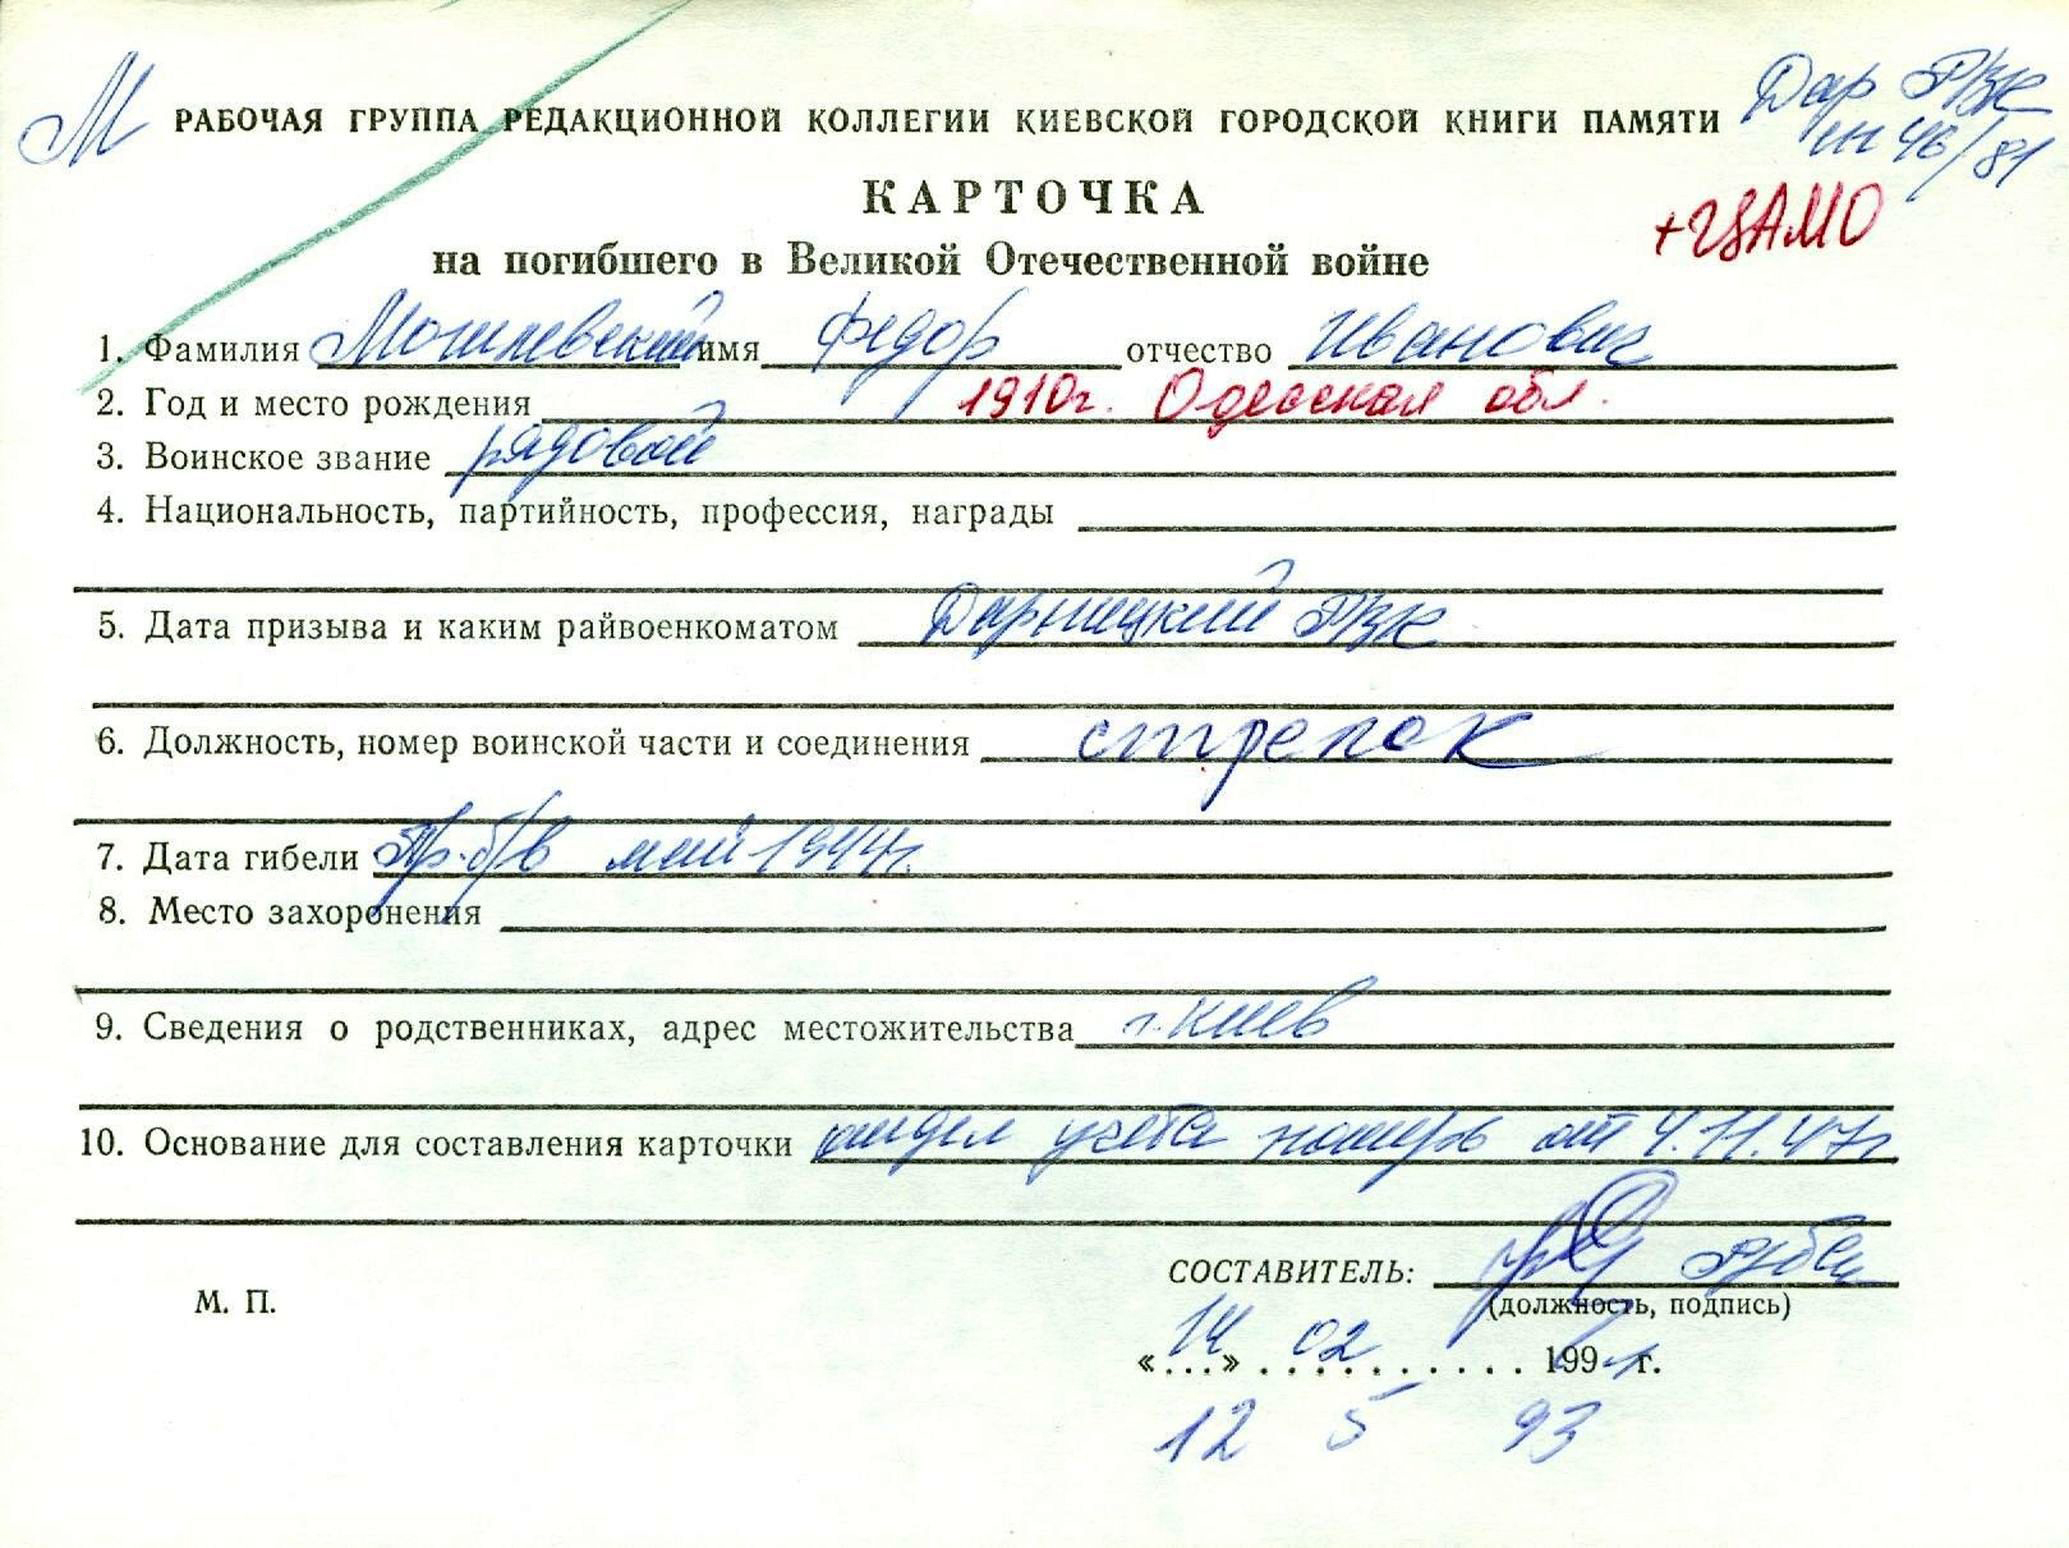 М РАБОЧАЯ ГРУППА РЕДАКЦИОННОЙ КОЛЛЕГИИ КИЕВСКОЙ ГОРОДСКОЙ КНИГИ ПАМЯТИ Дар РВК
ин 46/81
КАРТОЧКА
+ЦАМО
на погибшего в Великой Отечественной войне
1. Фамилия Могилевский имя Федор отчество Иванович
2. Год и место рождения 1910г. Одесская обл.
3. Воинское звание рядовой
4. Национальность, партийность, профессия, награды
5. Дата призыва и каким райвоенкоматом Дарницкий РВК
6. Должность, номер воинской части и соединения стрелок
7. Дата гибели Пр. б/в май 1944г.
8. Место захоронения
9. Сведения о родственниках, адрес местожительства г. Киев
10. Основание для составления карточки учета от 4.11.47г
СОСТАВИТЕЛЬ:
М. П.
(должность, подпись)
«...» 14 02 199 г.
12 5 93